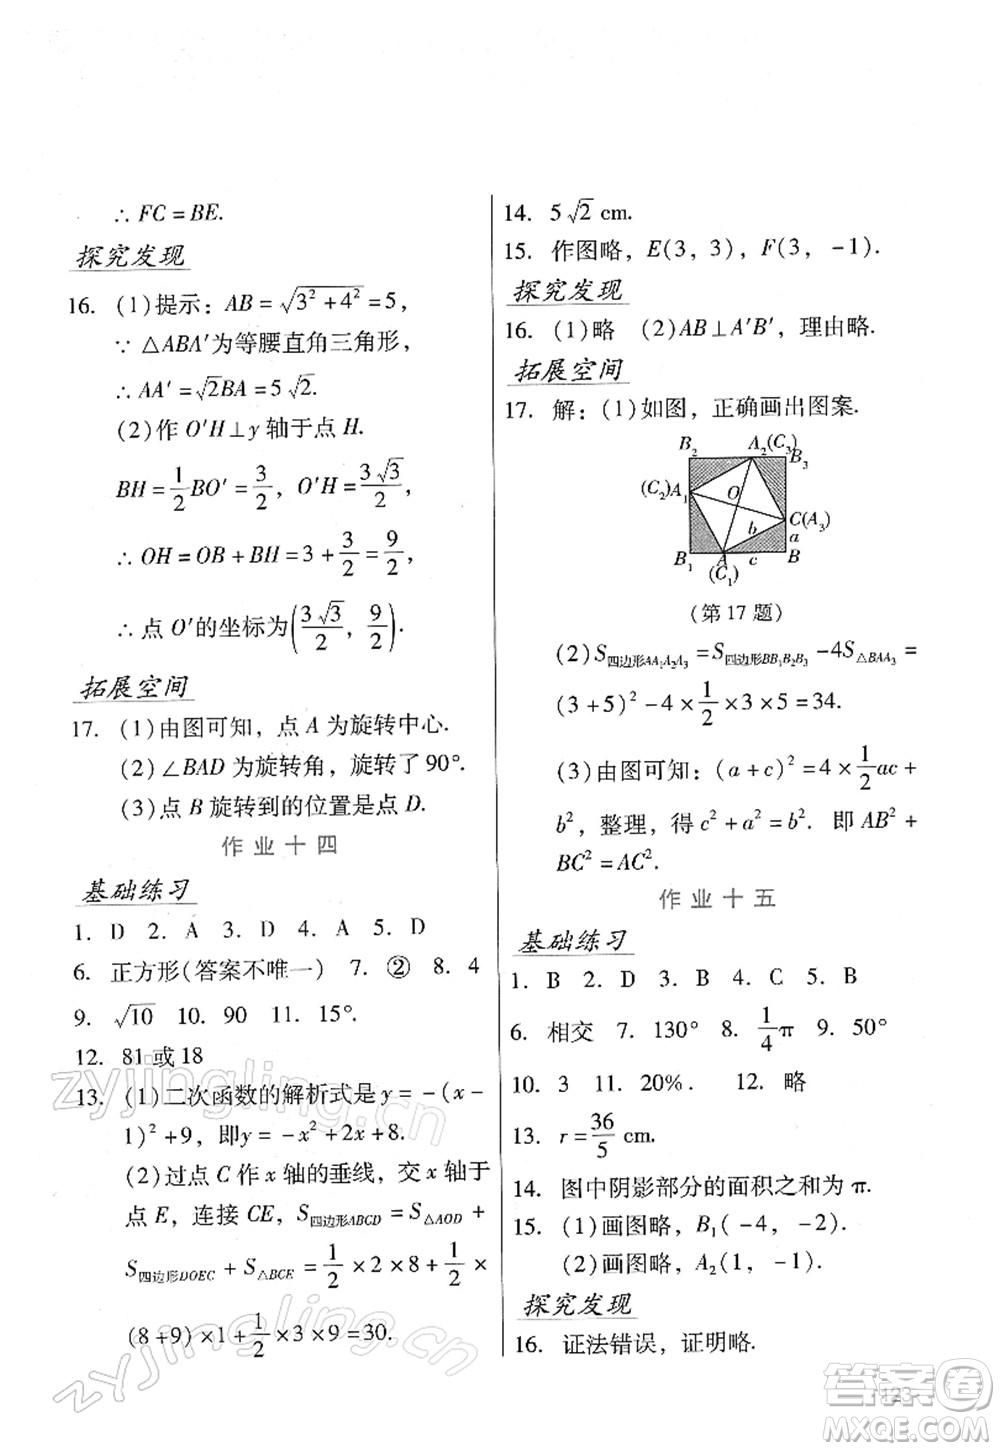 ∴ FC = BE.
探究发现
16. (1)提示：AB = √(3² + 4²) = 5，
∵ △ABA′为等腰直角三角形，
∴ AA′ = √2BA = 5√2.
(2)作 O′H⊥y 轴于点 H.
BH = 1/2 BO′ = 3/2，O′H = 3√3/2，
∴ OH = OB + BH = 3 + 3/2 = 9/2，
∴ 点 O′的坐标为(3√3/2，9/2).
拓展空间
17. (1)由图可知，点 A 为旋转中心.
(2)∠BAD 为旋转角，旋转了 90°.
(3)点 B 旋转到的位置是点 D.
作业十四
基础练习
1. D 2. A 3. D 4. A 5. D
6. 正方形(答案不唯一) 7. ② 8. 4
9. √10 10. 90 11. 15°.
12. 81 或 18
13. (1)二次函数的解析式是 y = −(x −
1)² + 9，即y = −x² + 2x + 8.
(2)过点 C 作 x 轴的垂线，交 x 轴于
点 E，连接 CE，S四边形ABCD = S△AOD +
S四边形DOEC + S△BCE = 1/2 × 2 × 8 + 1/2 ×
(8 + 9) × 1 + 1/2 × 3 × 9 = 30.
14. 5√2 cm.
15. 作图略，E(3，3)，F(3，−1).
探究发现
16. (1)略 (2)AB⊥A′B′，理由略.
拓展空间
17. 解：(1)如图，正确画出图案.
B₂ A₂(C₃) B₃
(C₂)A₁ O
b C(A₃)
a
B₁ A c B
(C₁)
(第 17 题)
(2)S四边形AA₁A₂A₃ = S四边形BB₁B₂B₃ − 4S△BAA₃ =
(3 + 5)² − 4 × 1/2 × 3 × 5 = 34.
(3)由图可知：(a + c)² = 4 × 1/2 ac +
b²，整理，得 c² + a² = b². 即 AB² +
BC² = AC².
作业十五
基础练习
1. B 2. D 3. D 4. C 5. B
6. 相交 7. 130° 8. 1/4 π 9. 50°
10. 3 11. 20%. 12. 略
13. r = 36/5 cm.
14. 图中阴影部分的面积之和为 π.
15. (1)画图略，B₁(−4，−2).
(2)画图略，A₂(1，−1).
探究发现
16. 证法错误，证明略.
·123·
zyjingling.cn
zyjingling.cn
答案圈
MXQE.COM